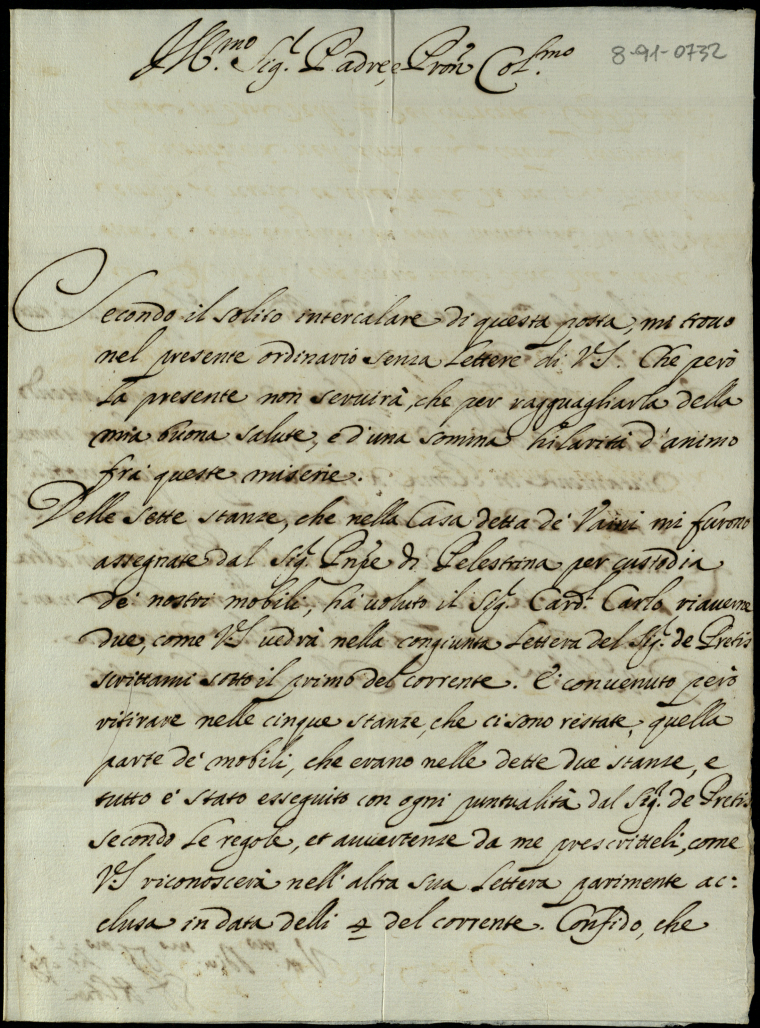 Ill.mo Sig.r Padre, e Pron Col.mo
8-91-0732
Secondo il solito intercalare di questa posta, mi trovo
nel presente ordinario senza lettere di V.S. Che però
la presente non servirà, che per ragguagliarla della
mia buona salute, e d'una somma hilarità d'animo
frà queste miserie.
Delle sette stanze, che nella Casa detta de' Vaini mi furono
assegnate dal Sig.r Pnpe di Pelestrina per custodia
de' nostri mobili, hà voluto il Sig.r Card.l Carlo riaverne
due, come V.S. vedrà nella congiunta lettera del Sig.r de Pretis
scrittami sotto il primo del corrente. E' convenuto però
ritirare nelle cinque stanze, che ci sono restate, quella
parte de' mobili, che erano nelle dette due stanze, e
tutto è stato esseguito con ogni puntualità dal Sig.r de Pretis
secondo le regole, et avvertenze da me prescritteli, come
V.S. riconoscerà nell'altra sua lettera parimente ac=
clusa in data delli 4 del corrente. Confido, che